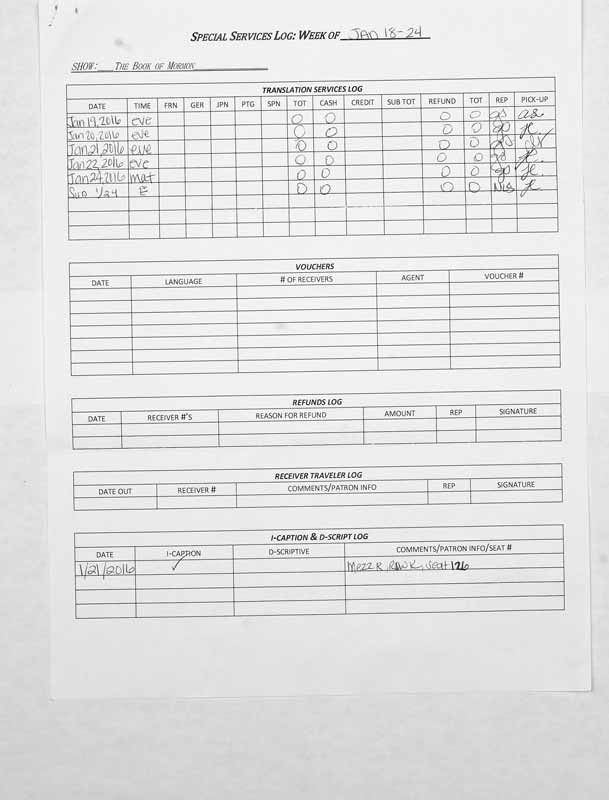 SPECIAL SERVICES LOG: WEEK OF JAN 18-24
SHOW: THE BOOK OF MORMON
TRANSLATION SERVICES LOG
DATE TIME FRN GER JPN PTG SPN TOT CASH CREDIT SUB TOT REFUND TOT REP PICK-UP
Jan 19, 2016 eve 0 0 0 0
Jan 20, 2016 eve 0 0 0 0
Jan 21, 2016 eve 0 0 0 0
Jan 22, 2016 eve 0 0 0 0
Jan 24, 2016 mat 0 0 0 0
Sun 1/24 E 0 0 0 0
VOUCHERS
DATE LANGUAGE # OF RECEIVERS AGENT VOUCHER #
REFUNDS LOG
DATE RECEIVER #'S REASON FOR REFUND AMOUNT REP SIGNATURE
RECEIVER TRAVELER LOG
DATE OUT RECEIVER # COMMENTS/PATRON INFO REP SIGNATURE
I-CAPTION & D-SCRIPT LOG
DATE I-CAPTION D-SCRIPTIVE COMMENTS/PATRON INFO/SEAT #
1/21/2016 ✓ Mezz R, Row K, Seat 126